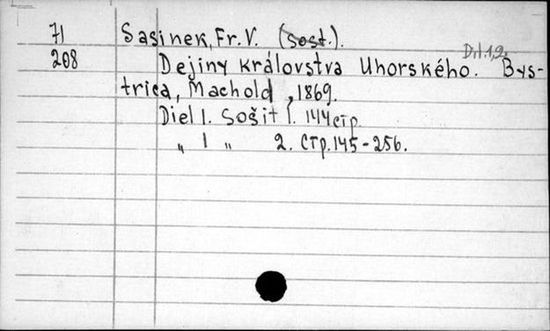 71 Sasinek, Fr. V. (sost.).
Dil.1,2.
208 Dejiny královstva Uhorského. Bys-
trica, Machold, 1869.
Diel 1. Sošit 1. 144 стр.
„ 1 „ 2. стр. 145-256.